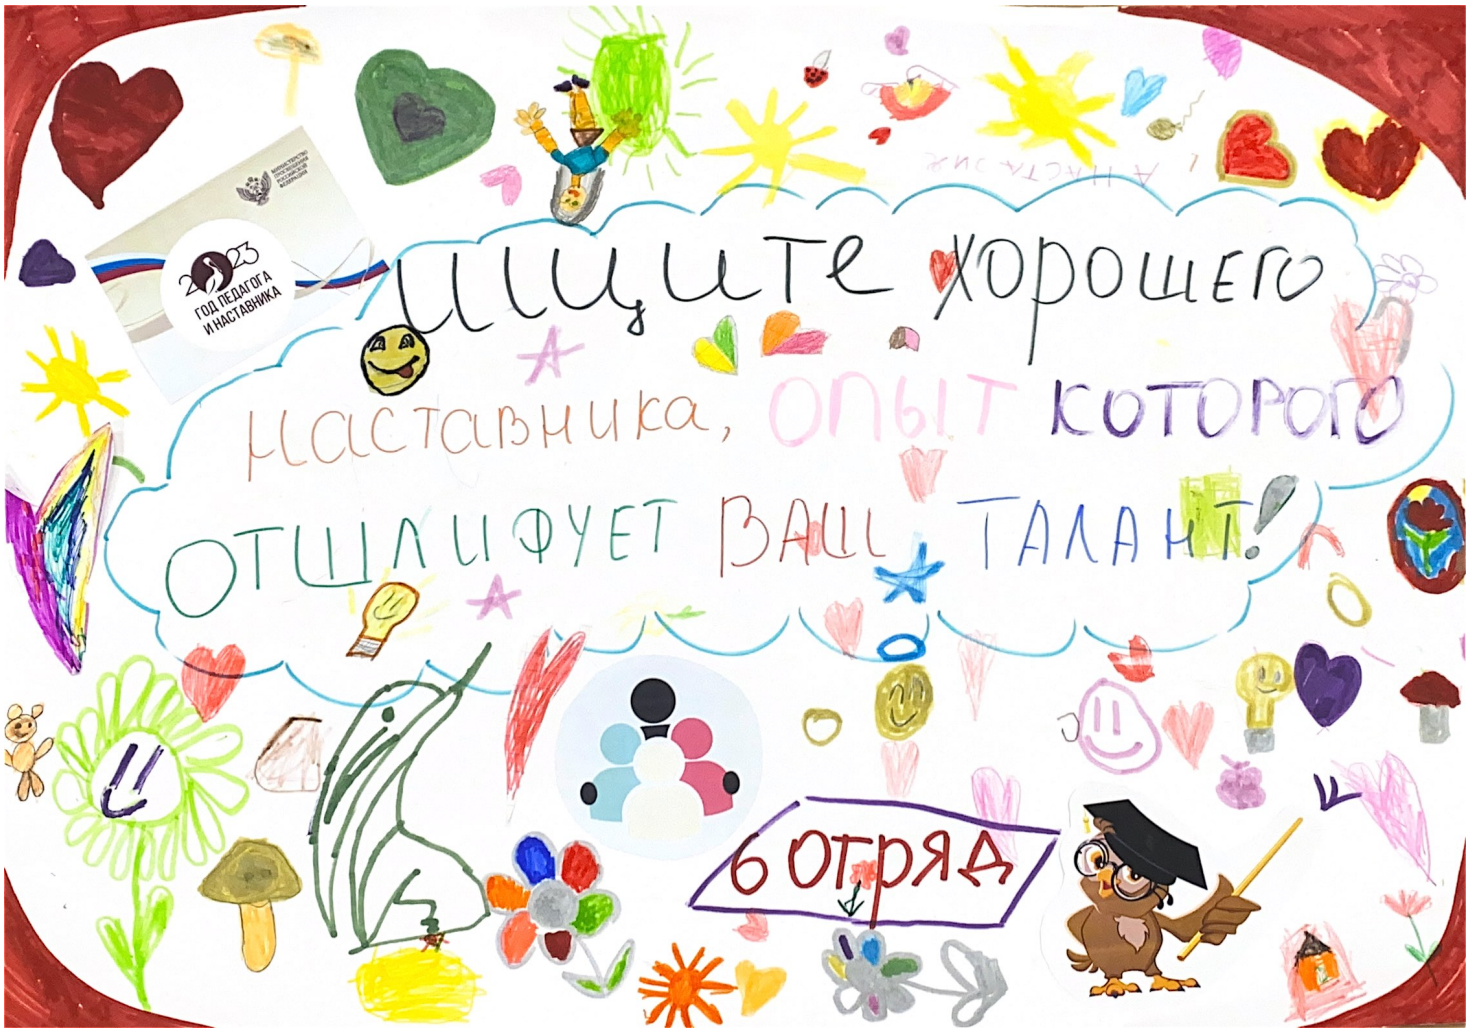 МИНИСТЕРСТВО
ПРОСВЕЩЕНИЯ
РОССИЙСКОЙ
ФЕДЕРАЦИИ
2023
ГОД ПЕДАГОГА
И НАСТАВНИКА
АНАСТАСИЯ
ищите хорошего
наставника, опыт которого
отшлифует ваш талант!
6 отряд